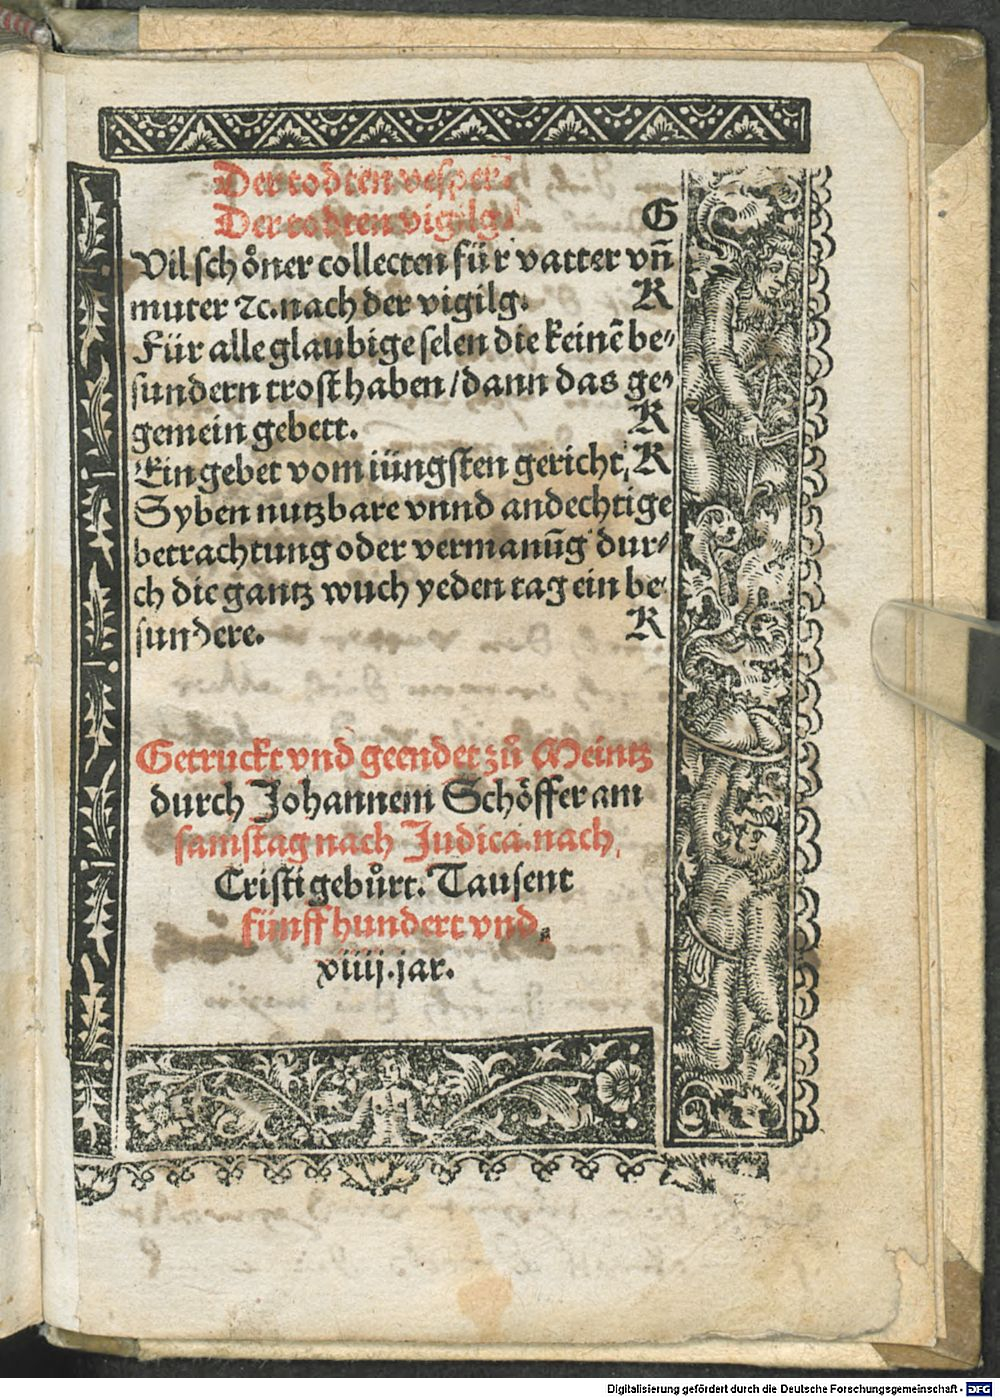 Der todten vesper.
Der todten vigilg. G
Vil schöner collecten für vatter vñ
muter ⁊c. nach der vigilg. K
Für alle glaubige selen die keinē be⸗
sundern trost haben / dann das ge⸗
gemein gebett. K
Ein gebet vom iüngsten gericht. K
Syben nutzbare vnnd andechtige
betrachtung oder vermanūg dur⸗
ch die gantz wuch yeden tag ein be⸗
sundere. K
Getruckt vnd geendet zů Meintz
durch Johannem Schöffer am
samstag nach Judica. nach
Cristi gebůrt. Tausent
fünff hundert vnd
xiiij. jar.
Digitalisierung gefördert durch die Deutsche Forschungsgemeinschaft - DFG